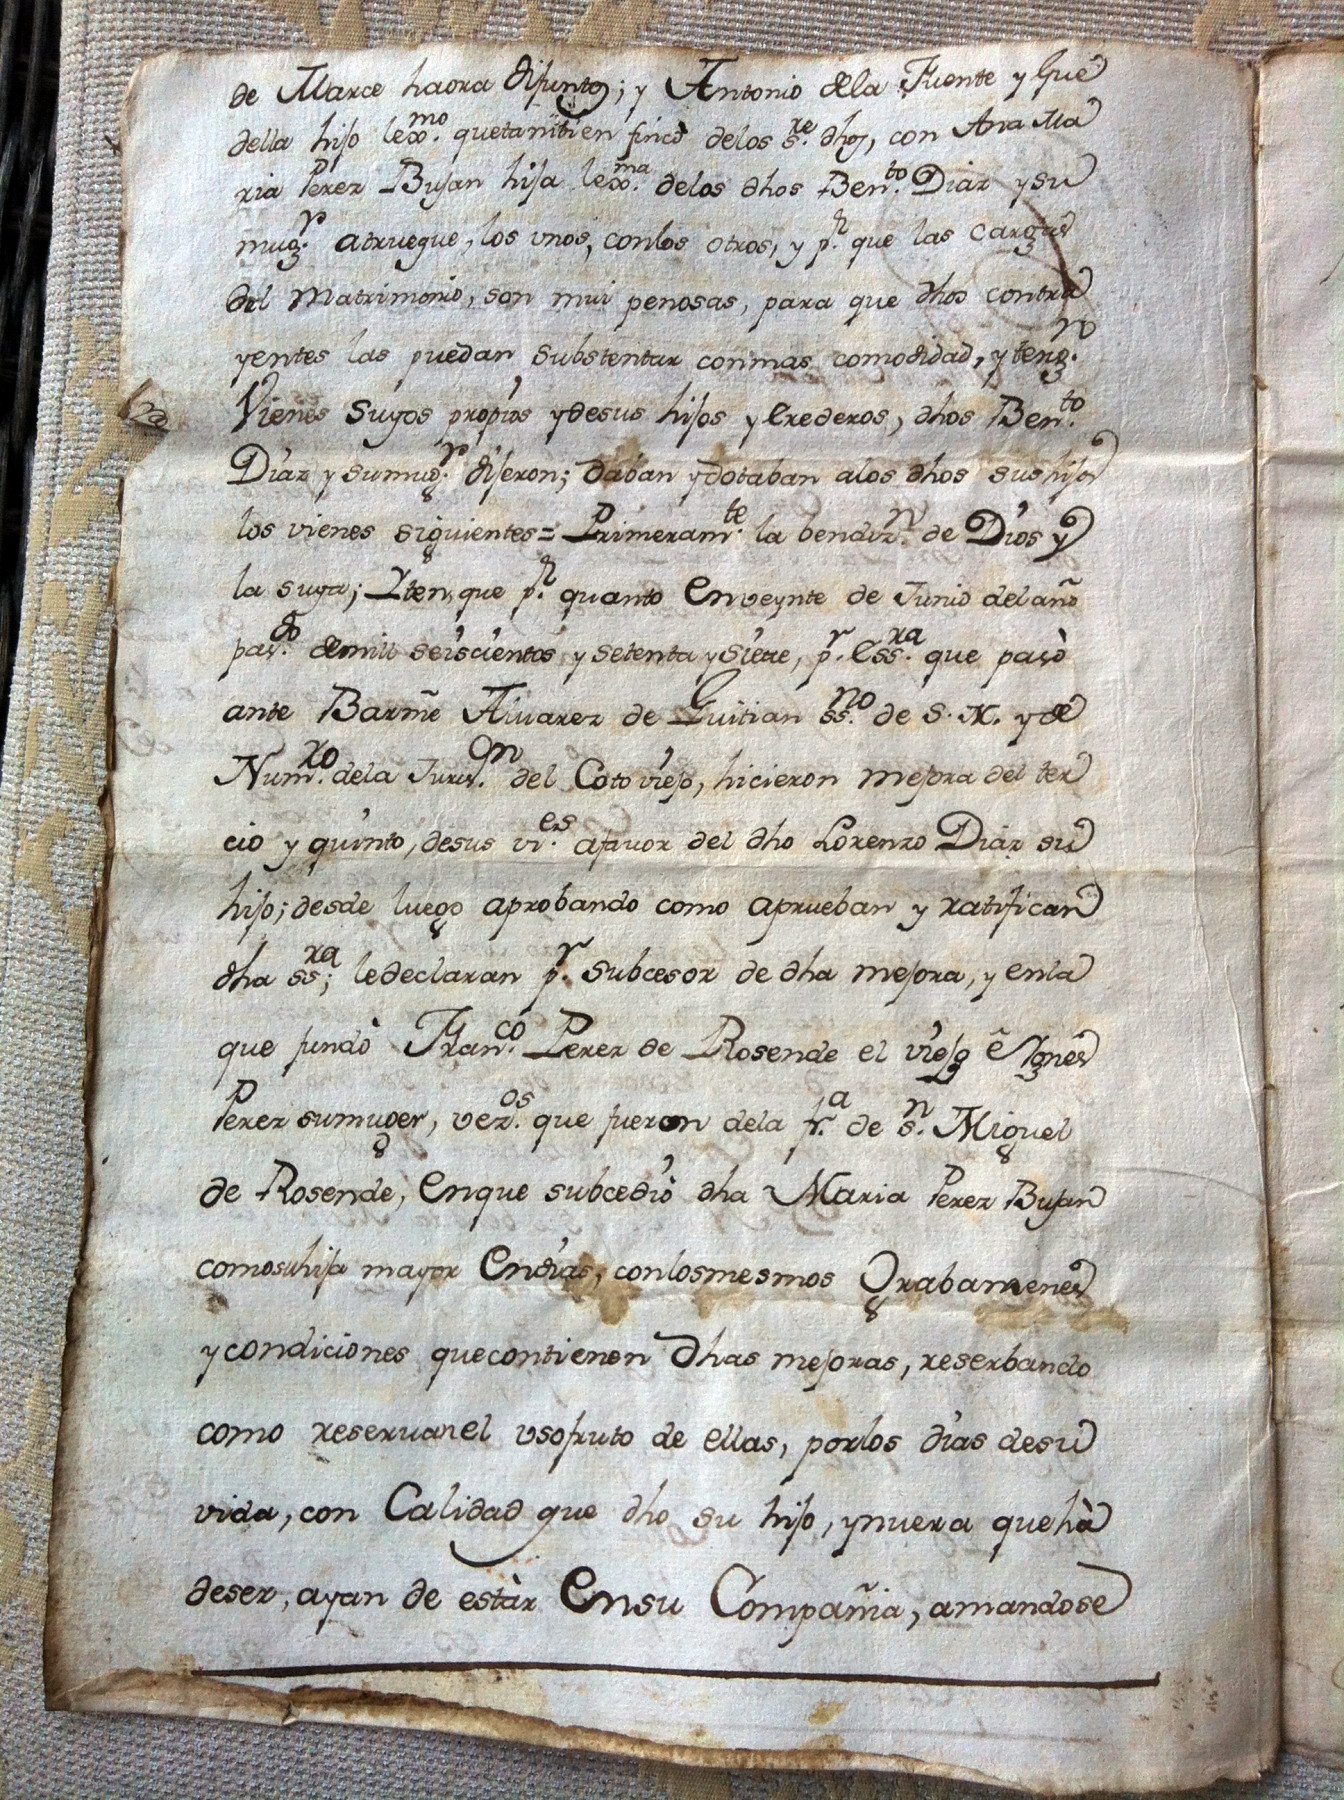 de Marce haora difunto; y Antonio dela Fuente y Gue
della hijo lex.mo quetanbien fincò delos s.re dhos, con Ana Ma
ria Perez Bujan hija lex.ma delos dhos Ben.to Diaz y su
mug.r atruegue, los vnos, conlos otros, y p.r que las cargas
del Matrimonio, son mui penosas, para que dhos contra
yentes las puedan substentar conmas comodidad, y teng.n
Vienes suyos propios ydesus hijos y Erederos, dhos Ben.to
Diaz y sumug.r dijeron; daban ydotaban alos dhos sus hijos
los vienes siguientes= Primeram.te la bendiz.n de Dios y
la suya; Yten, que p.r quanto Enveynte de Junio del año
pas.do demill seiscientos y setenta y siete, p.r Ess.ra que pasò
ante Barme Alvarez de Guitian ss.no de S. M. y de
Num.ro dela Juris.on del Coto viejo, hicieron mejora del ter
cio y quinto, desus vi.es afauor del dho Lorenzo Diaz su
hijo; desde luego aprobando como aprueban y ratifican
dha ss.ra; ledeclaran p.r subcesor de dha mejora, y enla
que fundò Fran.co Perez de Rosende el viejo è Ygnes
Perez sumuger, vez.os que fueron dela fr.a de s.n Miguel
de Rosende, Enque subcediò dha Maria Perez Bujan
comosuhija mayor Endias, conlosmesmos Grabamenes
y condiciones quecontienen dhas mejoras, reserbando
como reseruanel vsofruto de ellas, porlos dias desu
vida, con Calidad que dho su hijo, ynuera quehà
deser, ayan de estàr Ensu Compañia, amandose